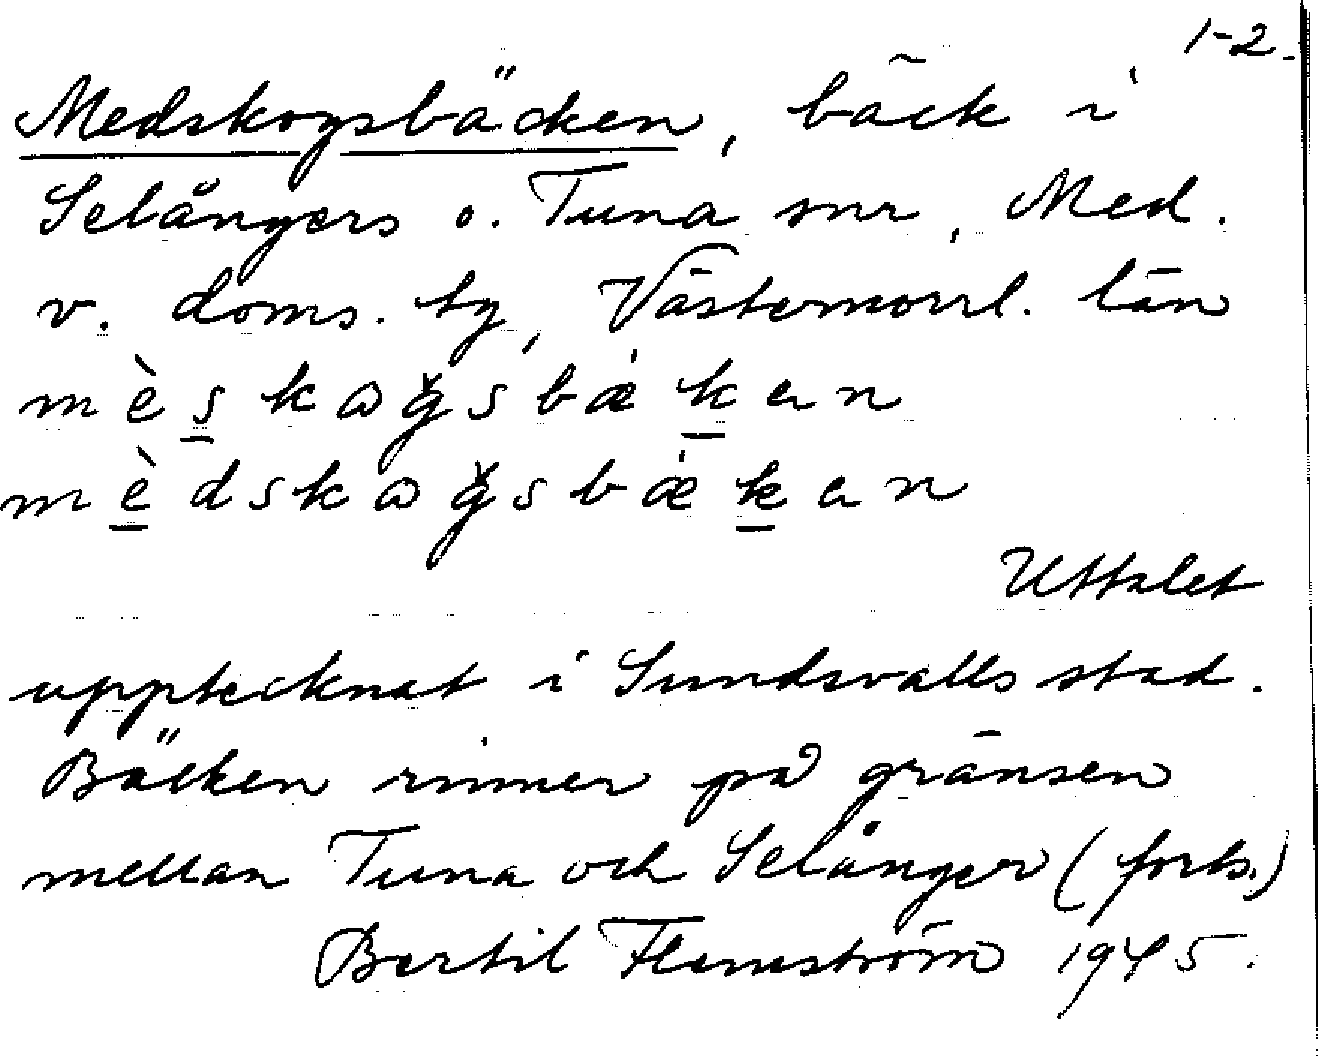 1-2
Medskogsbäcken, bäck i
Selångers o. Tuna snr, Med.
v. doms. tg, Västernorrl. län
mèskωgsbækan
mèdskωgsbækan
Uttalet
upptecknat i Sundsvalls stad.
Bäcken rinner på gränsen
mellan Tuna och Selånger (forts.)
Bertil Flemström 1945.